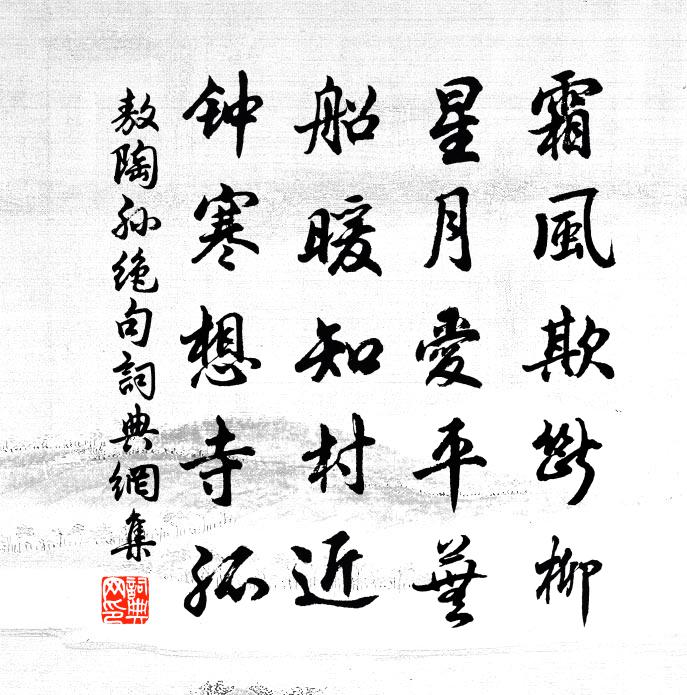 霜風欺斷柳
星月愛平蕪
船暖知村近
钟寒想寺孤
敖陶孙絶句詞典網集
詞典網印